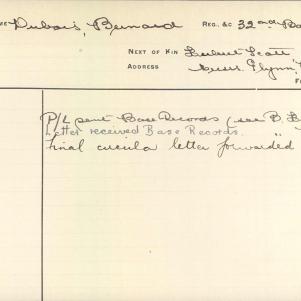 ME Dubois, Bernard REG. &C 32nd Ba
NEXT OF KIN Hubert Scott
ADDRESS Flynn,
P/L sent Base Records (see B. L
Letter received Base Records.
Final circular letter forwarded